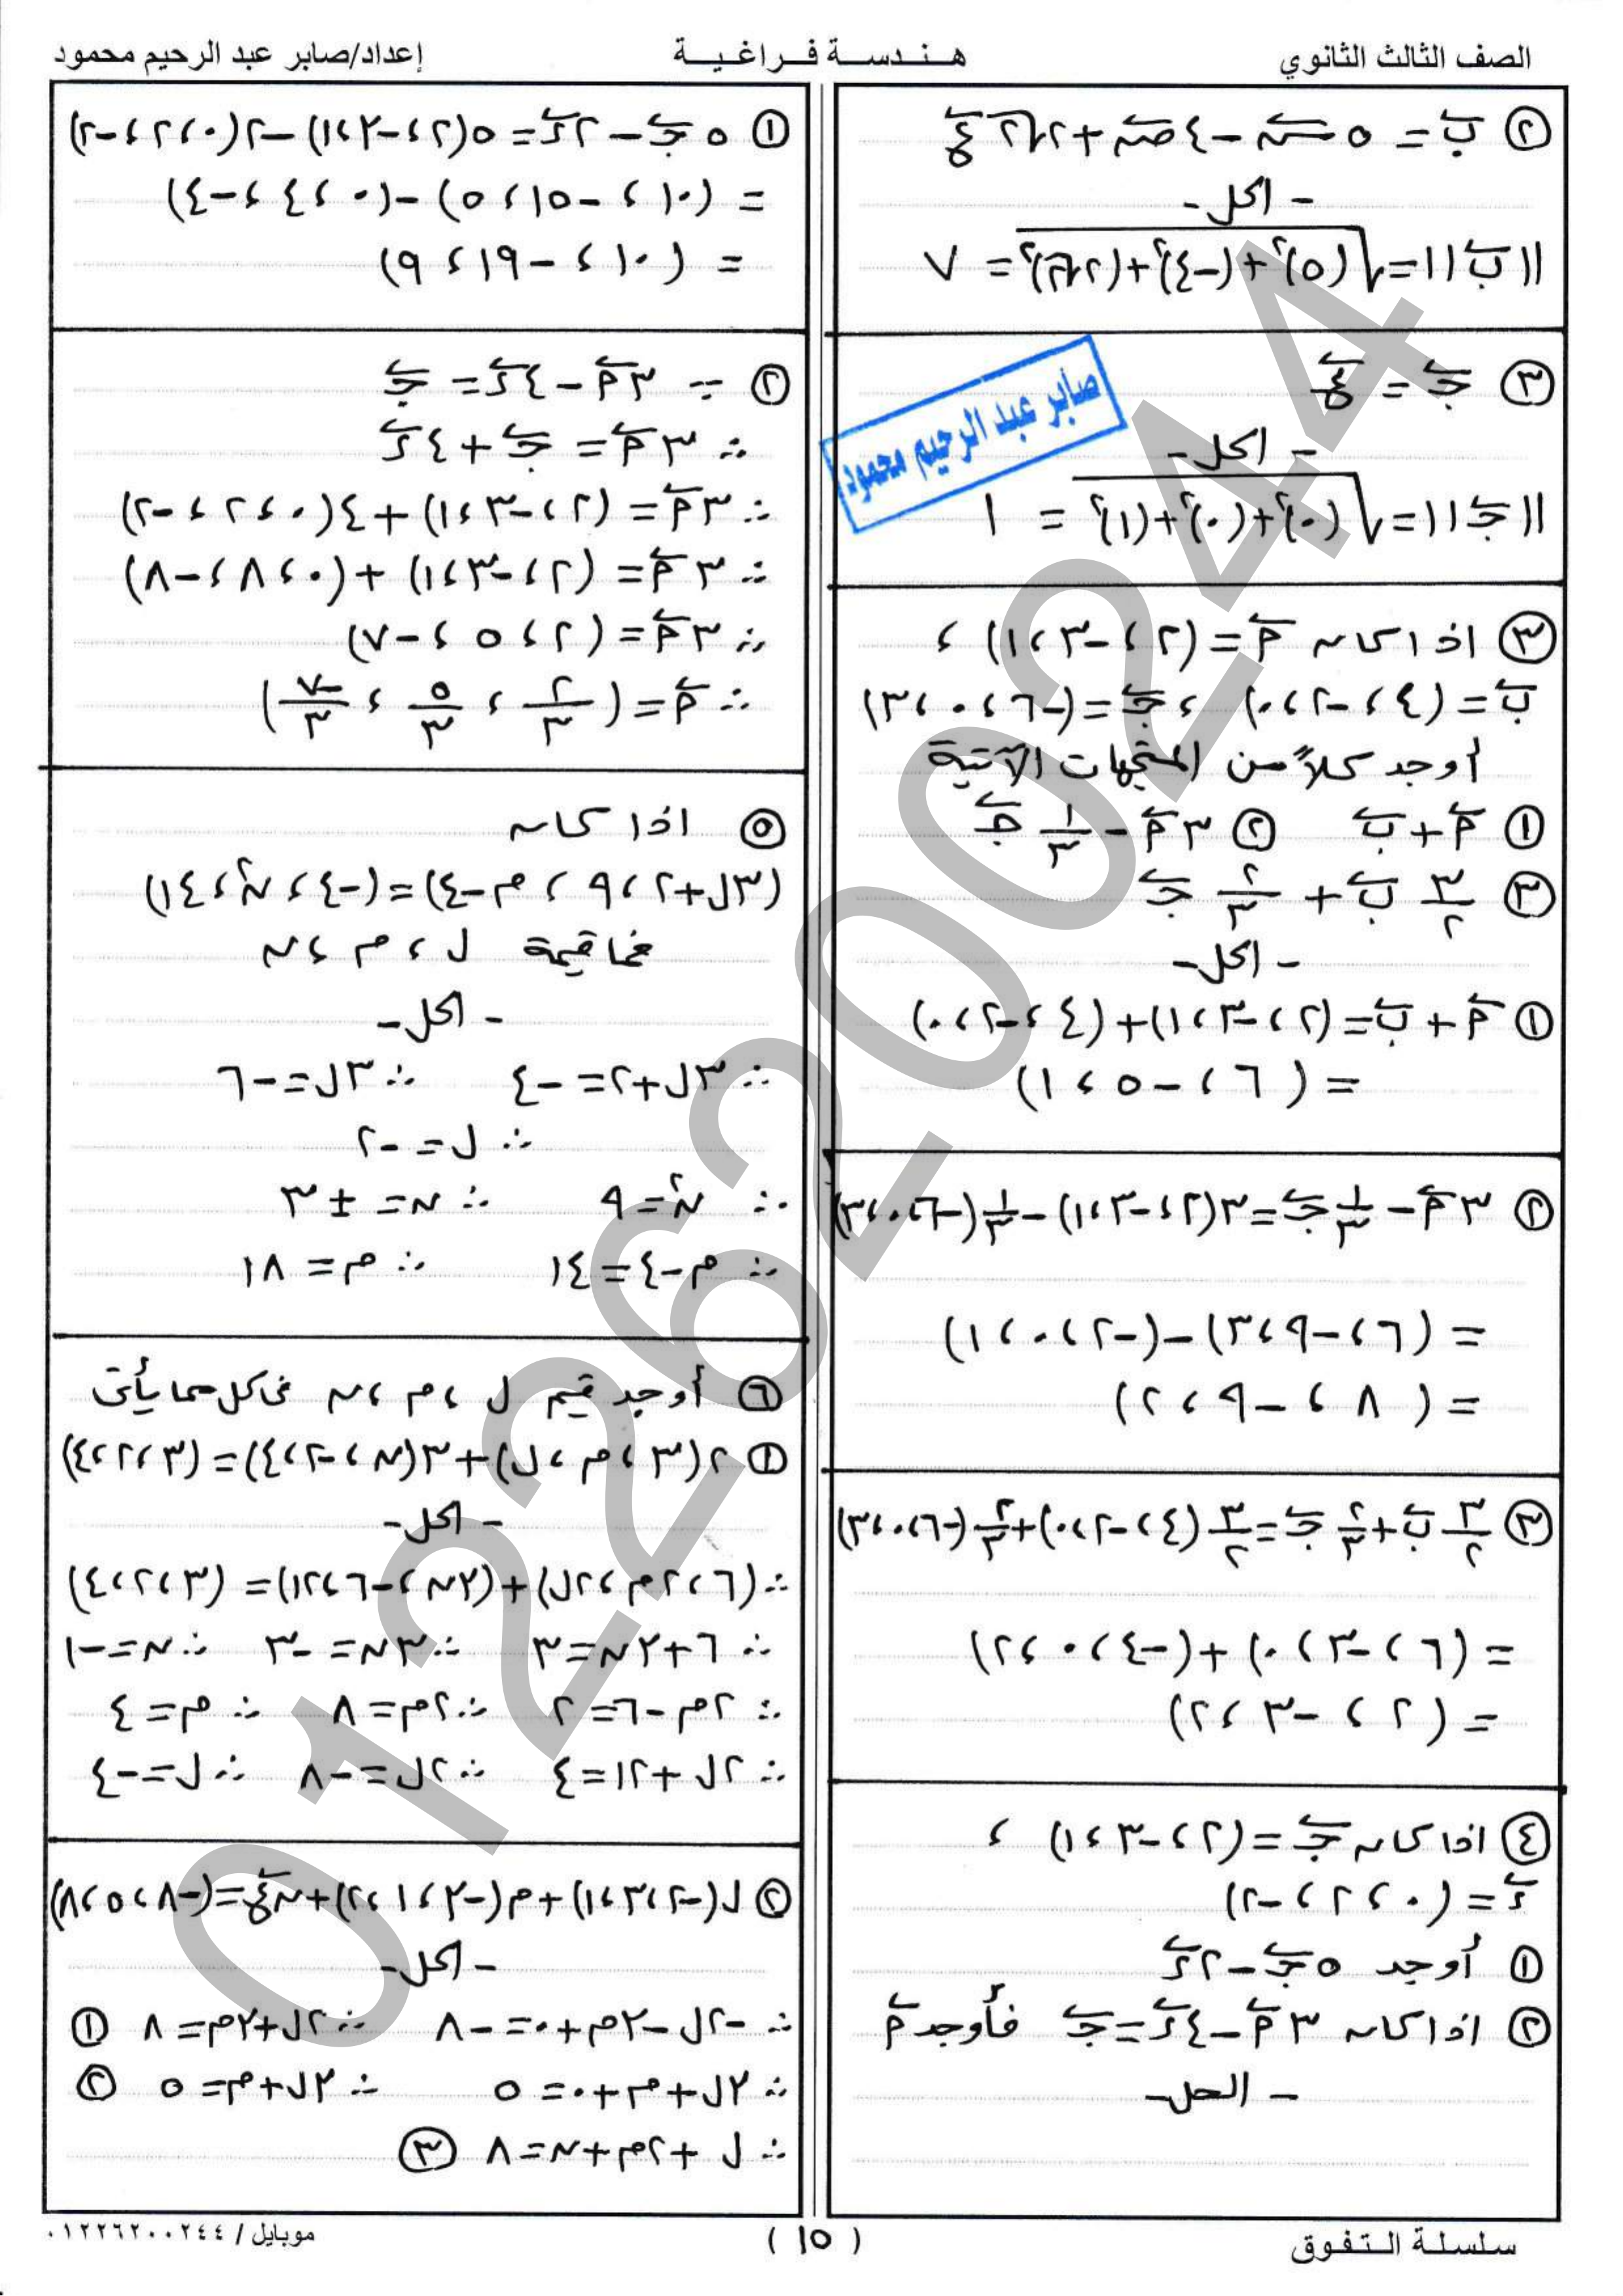 الصف الثالث الثانوي
هندسة فراغية
إعداد/صابر عبد الرحيم محمود
② ب = ٥ س - ٤ ص + ٢√٢ ع
- الحل -
||ب|| = √(٥)²+(-٤)²+(٢√٢)² = ٧
③ ج = ع
- الحل -
||ج|| = √(٠)²+(٠)²+(١)² = ١
صابر عبد الرحيم محمود
③ اذا كان م = (٢، -٣، ١) ،
ب = (٤، -٢، ٠) ، ج = (-٦، ٠، ٣)
أوجد كلاً من المتجهات الآتية
① م + ب ② ٣م - ١/٣ ج
③ ٣/٢ ب + ٢/٣ ج
- الحل -
① م + ب = (٢، -٣، ١) + (٤، -٢، ٠)
= (٦، -٥، ١)
② ٣م - ١/٣ ج = ٣(٢، -٣، ١) - ١/٣(-٦، ٠، ٣)
= (٦، -٩، ٣) - (-٢، ٠، ١)
= (٨، -٩، ٢)
③ ٣/٢ ب + ٢/٣ ج = ٣/٢(٤، -٢، ٠) + ٢/٣(-٦، ٠، ٣)
= (٦، -٣، ٠) + (-٤، ٠، ٢)
= (٢، -٣، ٢)
④ اذا كان ج = (٢، -٣، ١) ،
ء = (٠، ٢، -٢)
① أوجد ٥ج - ٢ء
② اذا كان ٣م - ٤ء = ج فأوجد م
- الحل -
① ٥ج - ٢ء = ٥(٢، -٣، ١) - ٢(٠، ٢، -٢)
= (١٠، -١٥، ٥) - (٠، ٤، -٤)
= (١٠، -١٩، ٩)
② ∵ ٣م - ٤ء = ج
∴ ٣م = ج + ٤ء
∴ ٣م = (٢، -٣، ١) + ٤(٠، ٢، -٢)
∴ ٣م = (٢، -٣، ١) + (٠، ٨، -٨)
∴ ٣م = (٢، ٥، -٧)
∴ م = (٢/٣ ، ٥/٣ ، -٧/٣)
⑤ اذا كان
(٣ل+٢، ٩، م-٤) = (-٤، ن²، ١٤)
فما قيمة ل، م، ن
- الحل -
∴ ٣ل+٢ = -٤ ∴ ٣ل = -٦
∴ ل = -٢
∴ ن² = ٩ ∴ ن = ± ٣
∴ م-٤ = ١٤ ∴ م = ١٨
⑥ أوجد قيم ل، م، ن فى كل مما يأتى
① ٢(٣، م، ل) + ٣(ن، -٢، ٤) = (٣، ٢، ٤)
- الحل -
∴ (٦، ٢م، ٢ل) + (٣ن، -٦، ١٢) = (٣، ٢، ٤)
∴ ٦+٣ن = ٣ ∴ ٣ن = -٣ ∴ ن = -١
∴ ٢م-٦ = ٢ ∴ ٢م = ٨ ∴ م = ٤
∴ ٢ل+١٢ = ٤ ∴ ٢ل = -٨ ∴ ل = -٤
② ل(-٢، ٣، ١) + م(-٣، ١، ٢) + ن ع = (-٨، ٥، ٨)
- الحل -
∴ -٢ل-٣م+٠ = -٨ ∴ ٢ل+٣م = ٨ ①
∴ ٣ل+م+٠ = ٥ ∴ ٣ل+م = ٥ ②
∴ ل+٢م+ن = ٨ ③
01226200244
سلسلة التفوق
( ١٥ )
موبايل / ٠١٢٢٦٢٠٠٢٤٤